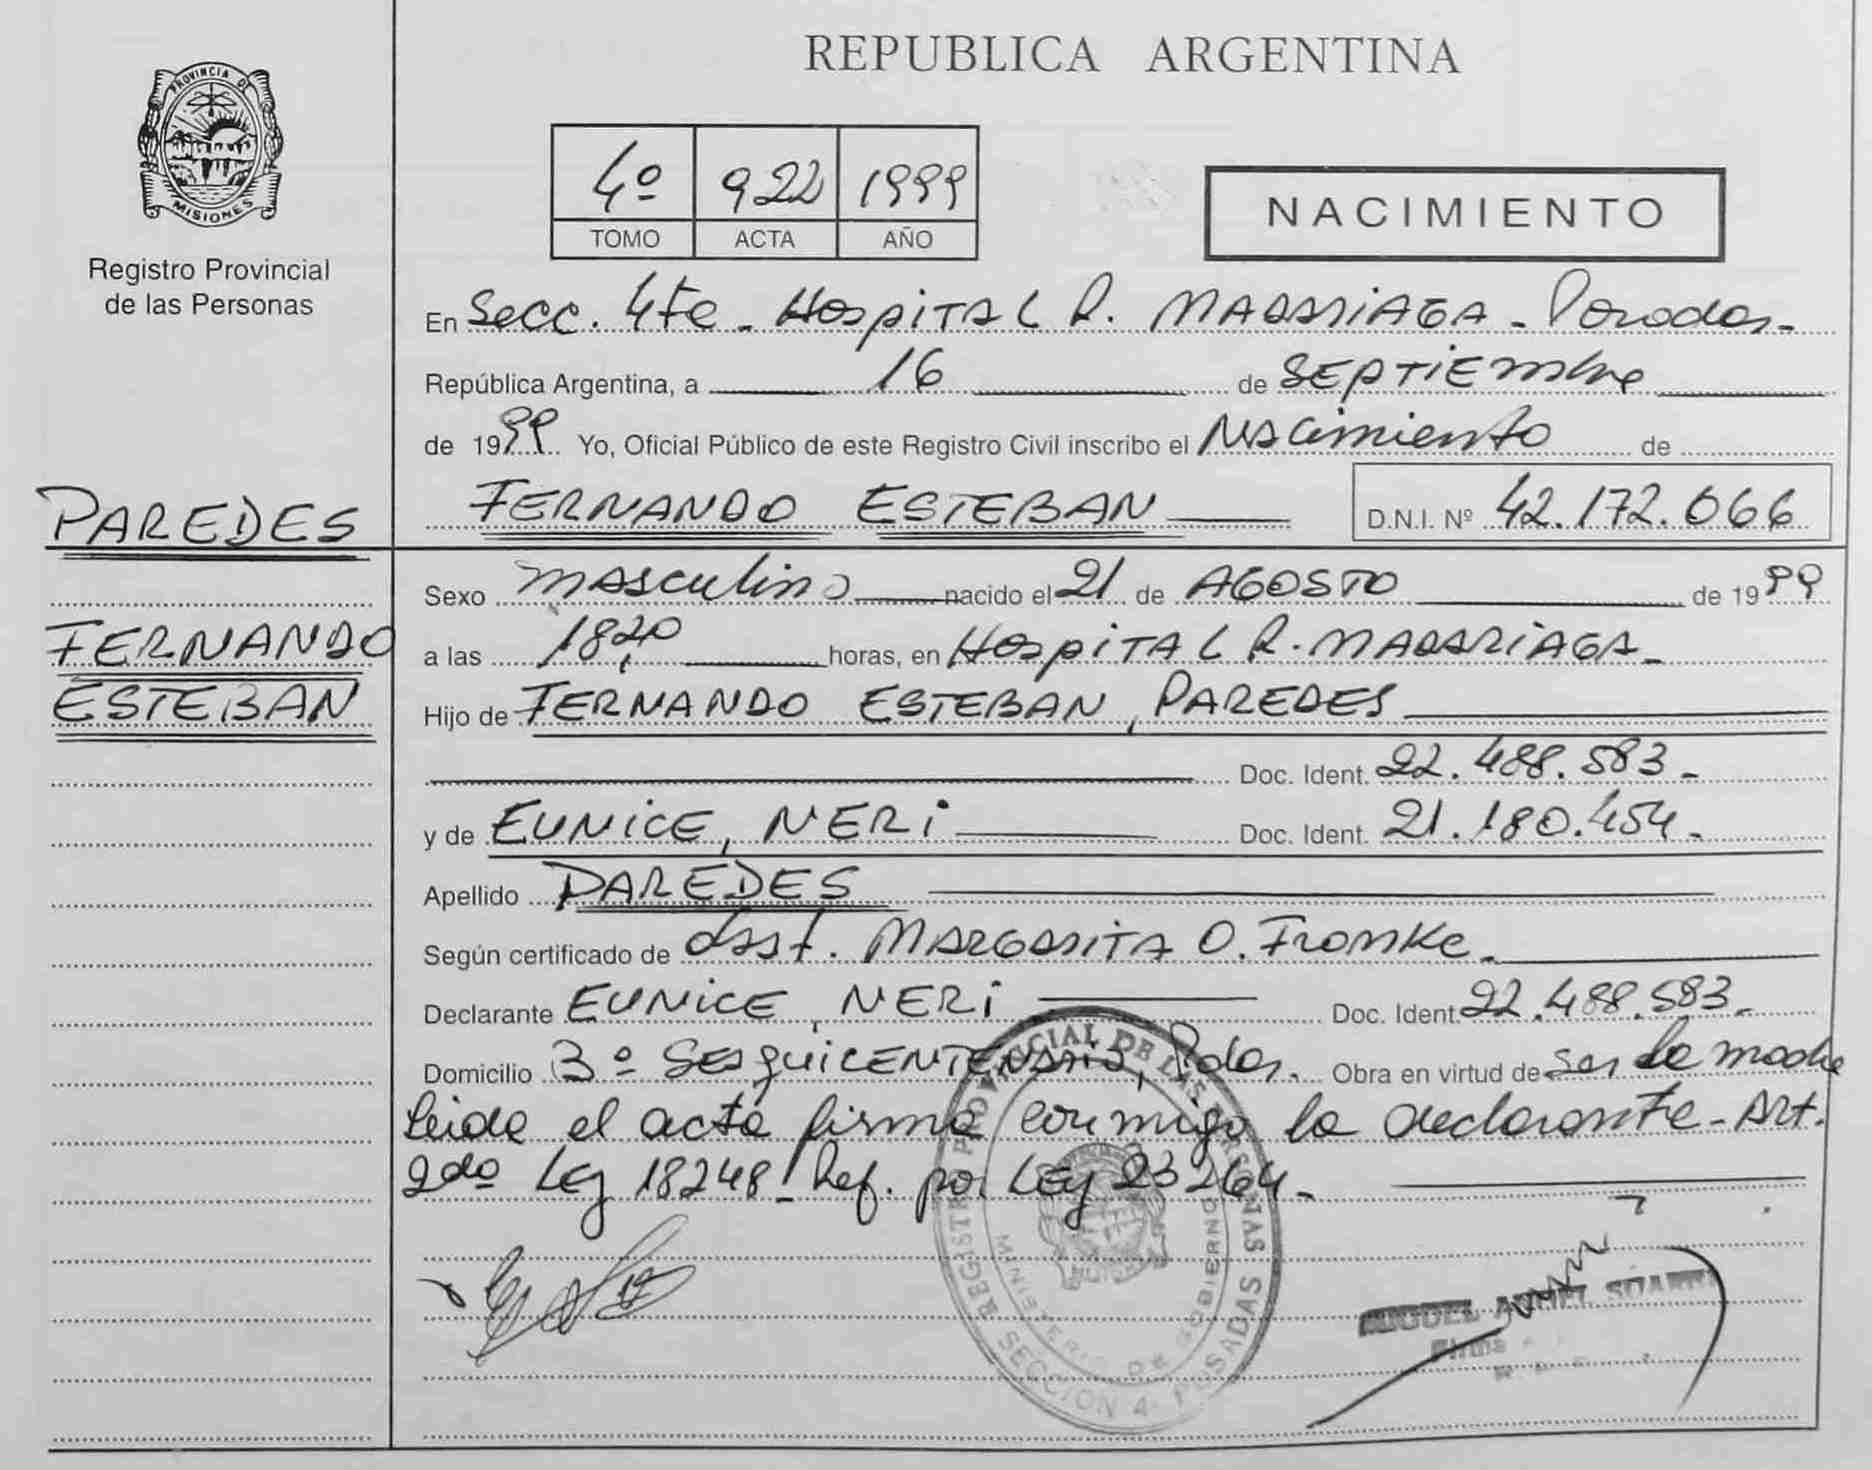 REPUBLICA ARGENTINA
PROVINCIA DE
MISIONES
Registro Provincial
de las Personas
4º 922 1999
TOMO ACTA AÑO
NACIMIENTO
En Secc. 4ta - Hospital R. MADARIAGA - Posadas -
República Argentina, a 16 de SEPTIEmbre
de 1999 Yo, Oficial Público de este Registro Civil inscribo el Nacimiento de
PAREDES
FERNANDO ESTEBAN D.N.I. Nº 42.172.066
Sexo masculino nacido el 21 de AGOSTO de 1999
FERNANDO
ESTEBAN
a las 18,20 horas, en HospiTAL R. MADARIAGA -
Hijo de FERNANDO ESTEBAN, PAREDES
Doc. Ident. 22.488.583 -
y de EUNICE, NERI Doc. Ident. 21.180.454 -
Apellido PAREDES
Según certificado de MARGARITA O. Fromke -
Declarante EUNICE, NERI Doc. Ident. 22.488.583 -
Domicilio Bº SESQUICENTENARIO, Pdas. Obra en virtud de ser la madre
Leida el acta firma conmigo la declarante - Art.
2do Ley 18248 - Ref. por LEY 23264 -
REGISTRO PROVINCIAL DE LAS PERSONAS
MINISTERIO DE GOBIERNO
SECCION 4 - POSADAS
MIGUEL ANGEL